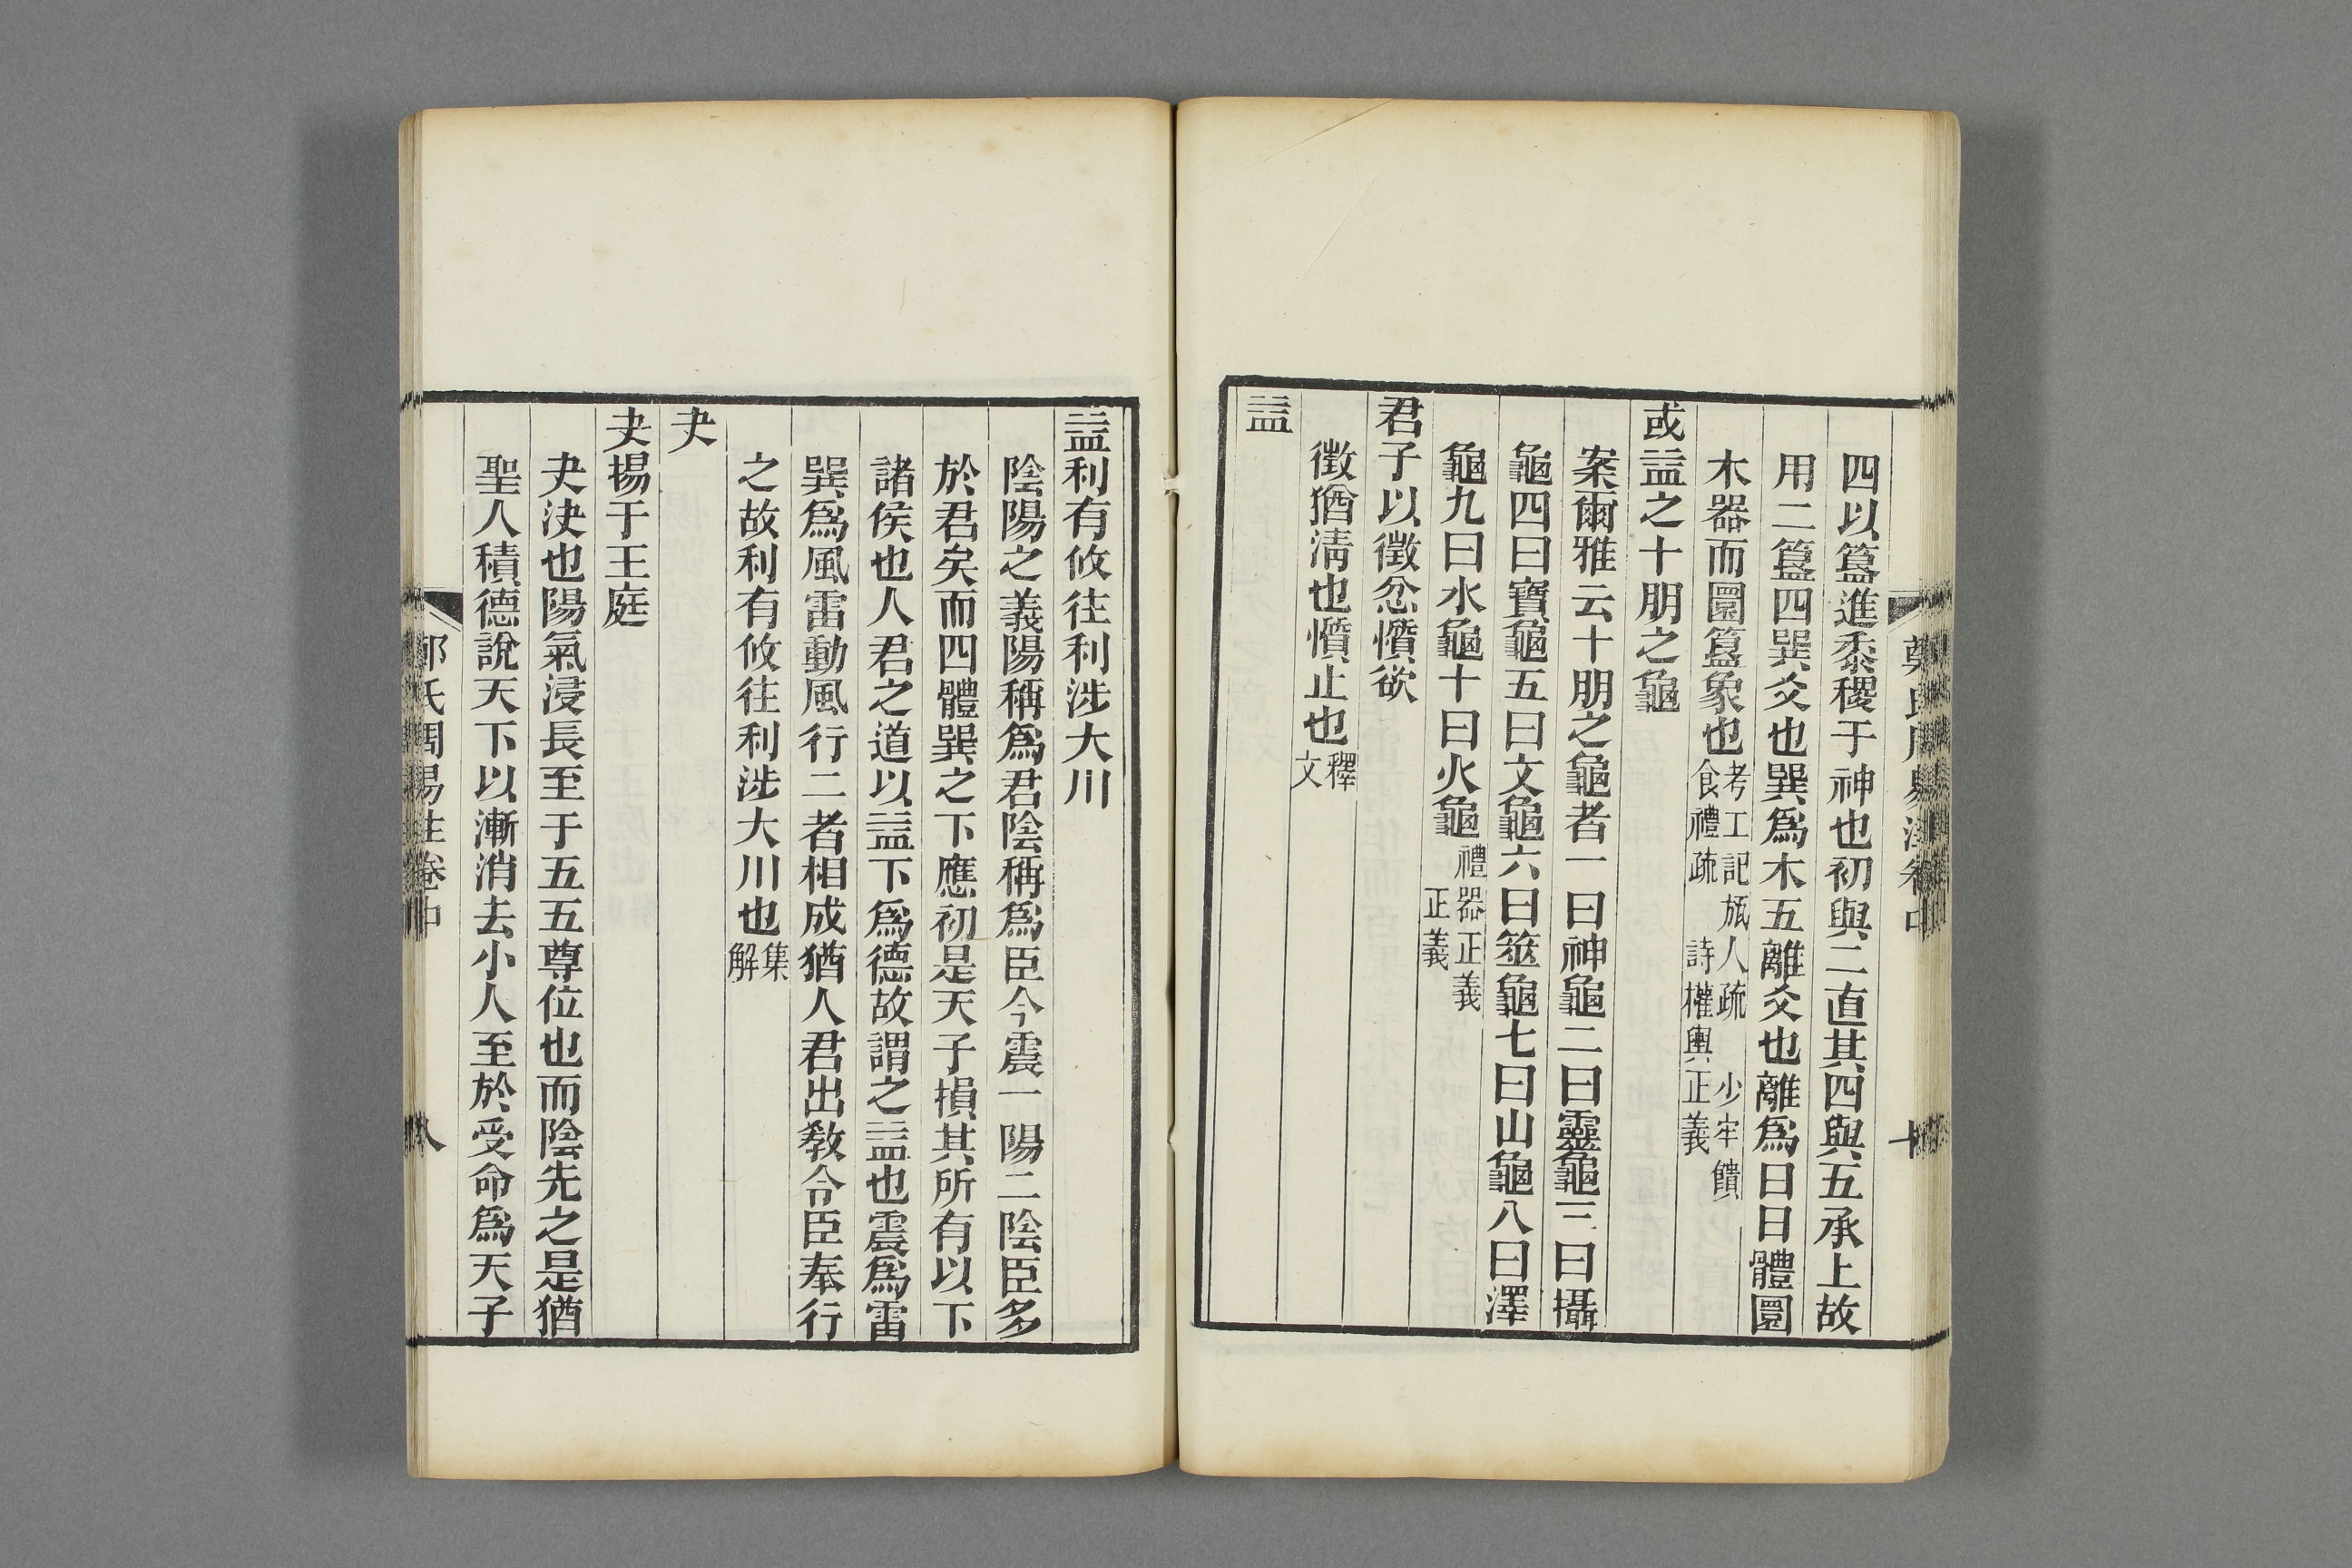 四以簋進黍稷于神也初與二直其四與五承上故
用二簋四巽爻也巽為木五離爻也離為日日體圜
木器而圜簋象也考工記瓬人疏 少牢饋
食禮疏 詩權輿正義
或益之十朋之龜
案爾雅云十朋之龜者一曰神龜二曰靈龜三曰攝
龜四曰寶龜五曰文龜六曰筮龜七曰山龜八曰澤
龜九曰水龜十曰火龜禮器正義
正義
君子以徵忿懫欲
徵猶淸也懫止也釋
文
益
益利有攸往利涉大川
陰陽之義陽稱為君陰稱為臣今震一陽二陰臣多
於君矣而四體巽之下應初是天子損其所有以下
諸侯也人君之道以益下為德故謂之益也震為雷
巽為風雷動風行二者相成猶人君出敎令臣奉行
之故利有攸往利涉大川也集
解
夬
夬揚于王庭
夬決也陽氣浸長至于五五尊位也而陰先之是猶
聖人積德說天下以漸消去小人至於受命為天子
氏周易注卷中
八